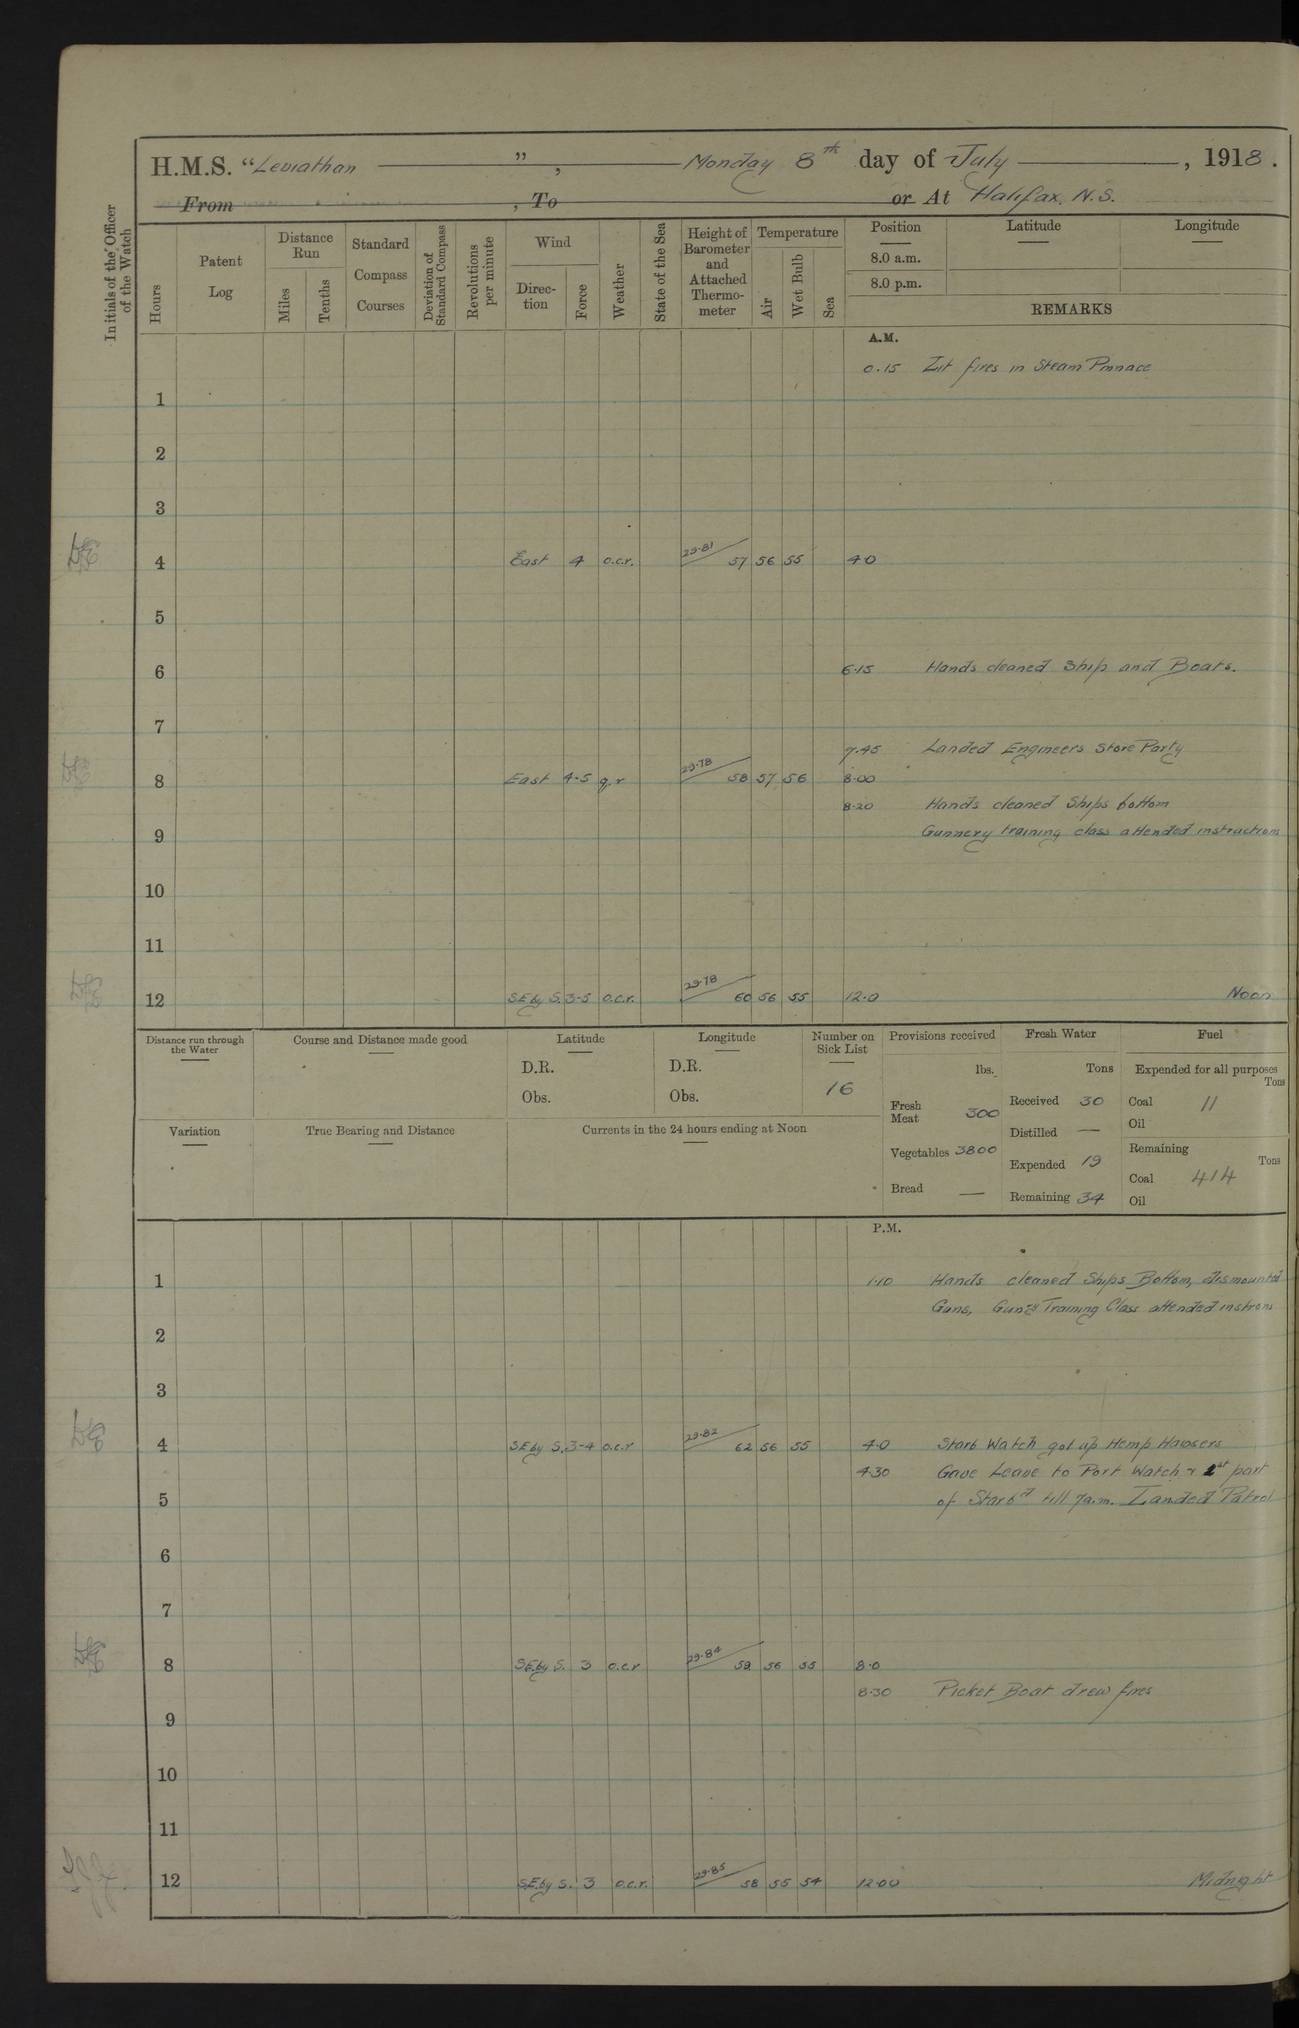 H.M.S. "Leviathan ", Monday 8th day of July, 1918.
From , To or At Halifax. N.S.
Initials of the Officer of the Watch
Hours
Patent Log
Distance Run
Miles
Tenths
Standard Compass Courses
Deviation of Standard Compass
Revolutions per minute
Wind
Direction
Force
Weather
State of the Sea
Height of Barometer and Attached Thermometer
Temperature
Air
Wet Bulb
Sea
Position
8.0 a.m.
8.0 p.m.
Latitude
Longitude
REMARKS
A.M.
0.15 Lit fires in Steam Pinnace
1
2
3
4 East 4 o.c.r. 29.81 57 56 55 4.0
5
6 6.15 Hands cleaned Ship and Boats.
7
7.45 Landed Engineers Store Party
8 East 4-5 q.r 29.78 58 57 56 8.00
8.20 Hands cleaned Ships bottom
9 Gunnery training class attended instructions
10
11
12 S.E. by S. 3-5 o.c.r. 29.78 60 56 55 12.0 Noon
Distance run through the Water
Course and Distance made good
Latitude
D.R.
Obs.
Longitude
D.R.
Obs.
Number on Sick List
16
Provisions received
lbs.
Fresh Meat 300
Vegetables 3800
Bread —
Fresh Water
Tons
Received 30
Distilled —
Expended 19
Remaining 34
Fuel
Expended for all purposes
Tons
Coal 11
Oil
Remaining
Tons
Coal 414
Oil
Variation
True Bearing and Distance
Currents in the 24 hours ending at Noon
P.M.
1 1.10 Hands cleaned Ships Bottom, dismounted
Guns, Gunry Training Class attended instrons
2
3
4 S.E. by S. 3-4 o.c.r 29.82 62 56 55 4.0 Starb Watch got up Hemp Hawsers
4.30 Gave Leave to Port Watch & 1st part
5 of Starbd till 7a.m. Landed Patrol
6
7
8 S.E. by S. 3 o.c.r 29.84 59 56 55 8.0
8.30 Picket Boat drew fires
9
10
11
12 S.E. by S. 3 o.c.r. 29.85 58 55 54 12.00 Midnight